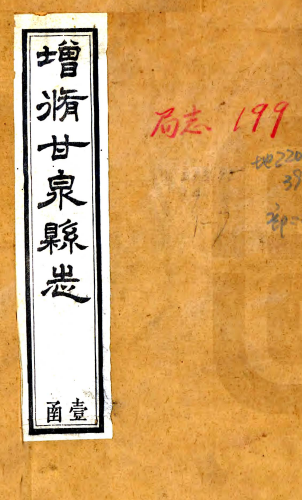 增脩甘泉縣志
壹函
局志 199
地220
39
1-7